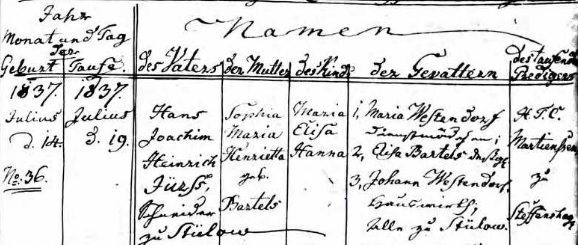 Jahr
Monat und Tag
der
Geburt Taufe.
Namen
des Vaters der Mutter des Kindes der Gevattern des taufenden Predigers
1837. 1837.
Julius Julius Hans Sophia Maria 1, Maria Westendorf H. F. C.
d. 14. d. 19. Joachim Maria Elisa Dienstmädchen; Martienssen
Heinrich Henrietta Hanna 2, Elisa Bartels
No. 36. Fürss, geb. 3, Johann Westendorf, zu
Schneider Bartels Hauswirth; Steffenshagen
zu Stülow alle zu Stülow.